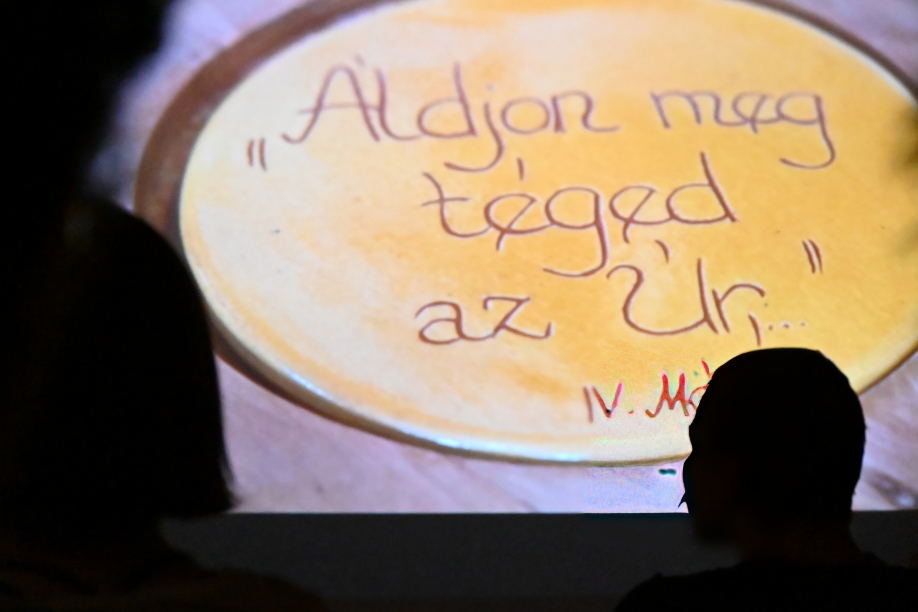 „Áldjon meg
téged
az Úr,..."
IV. Mó